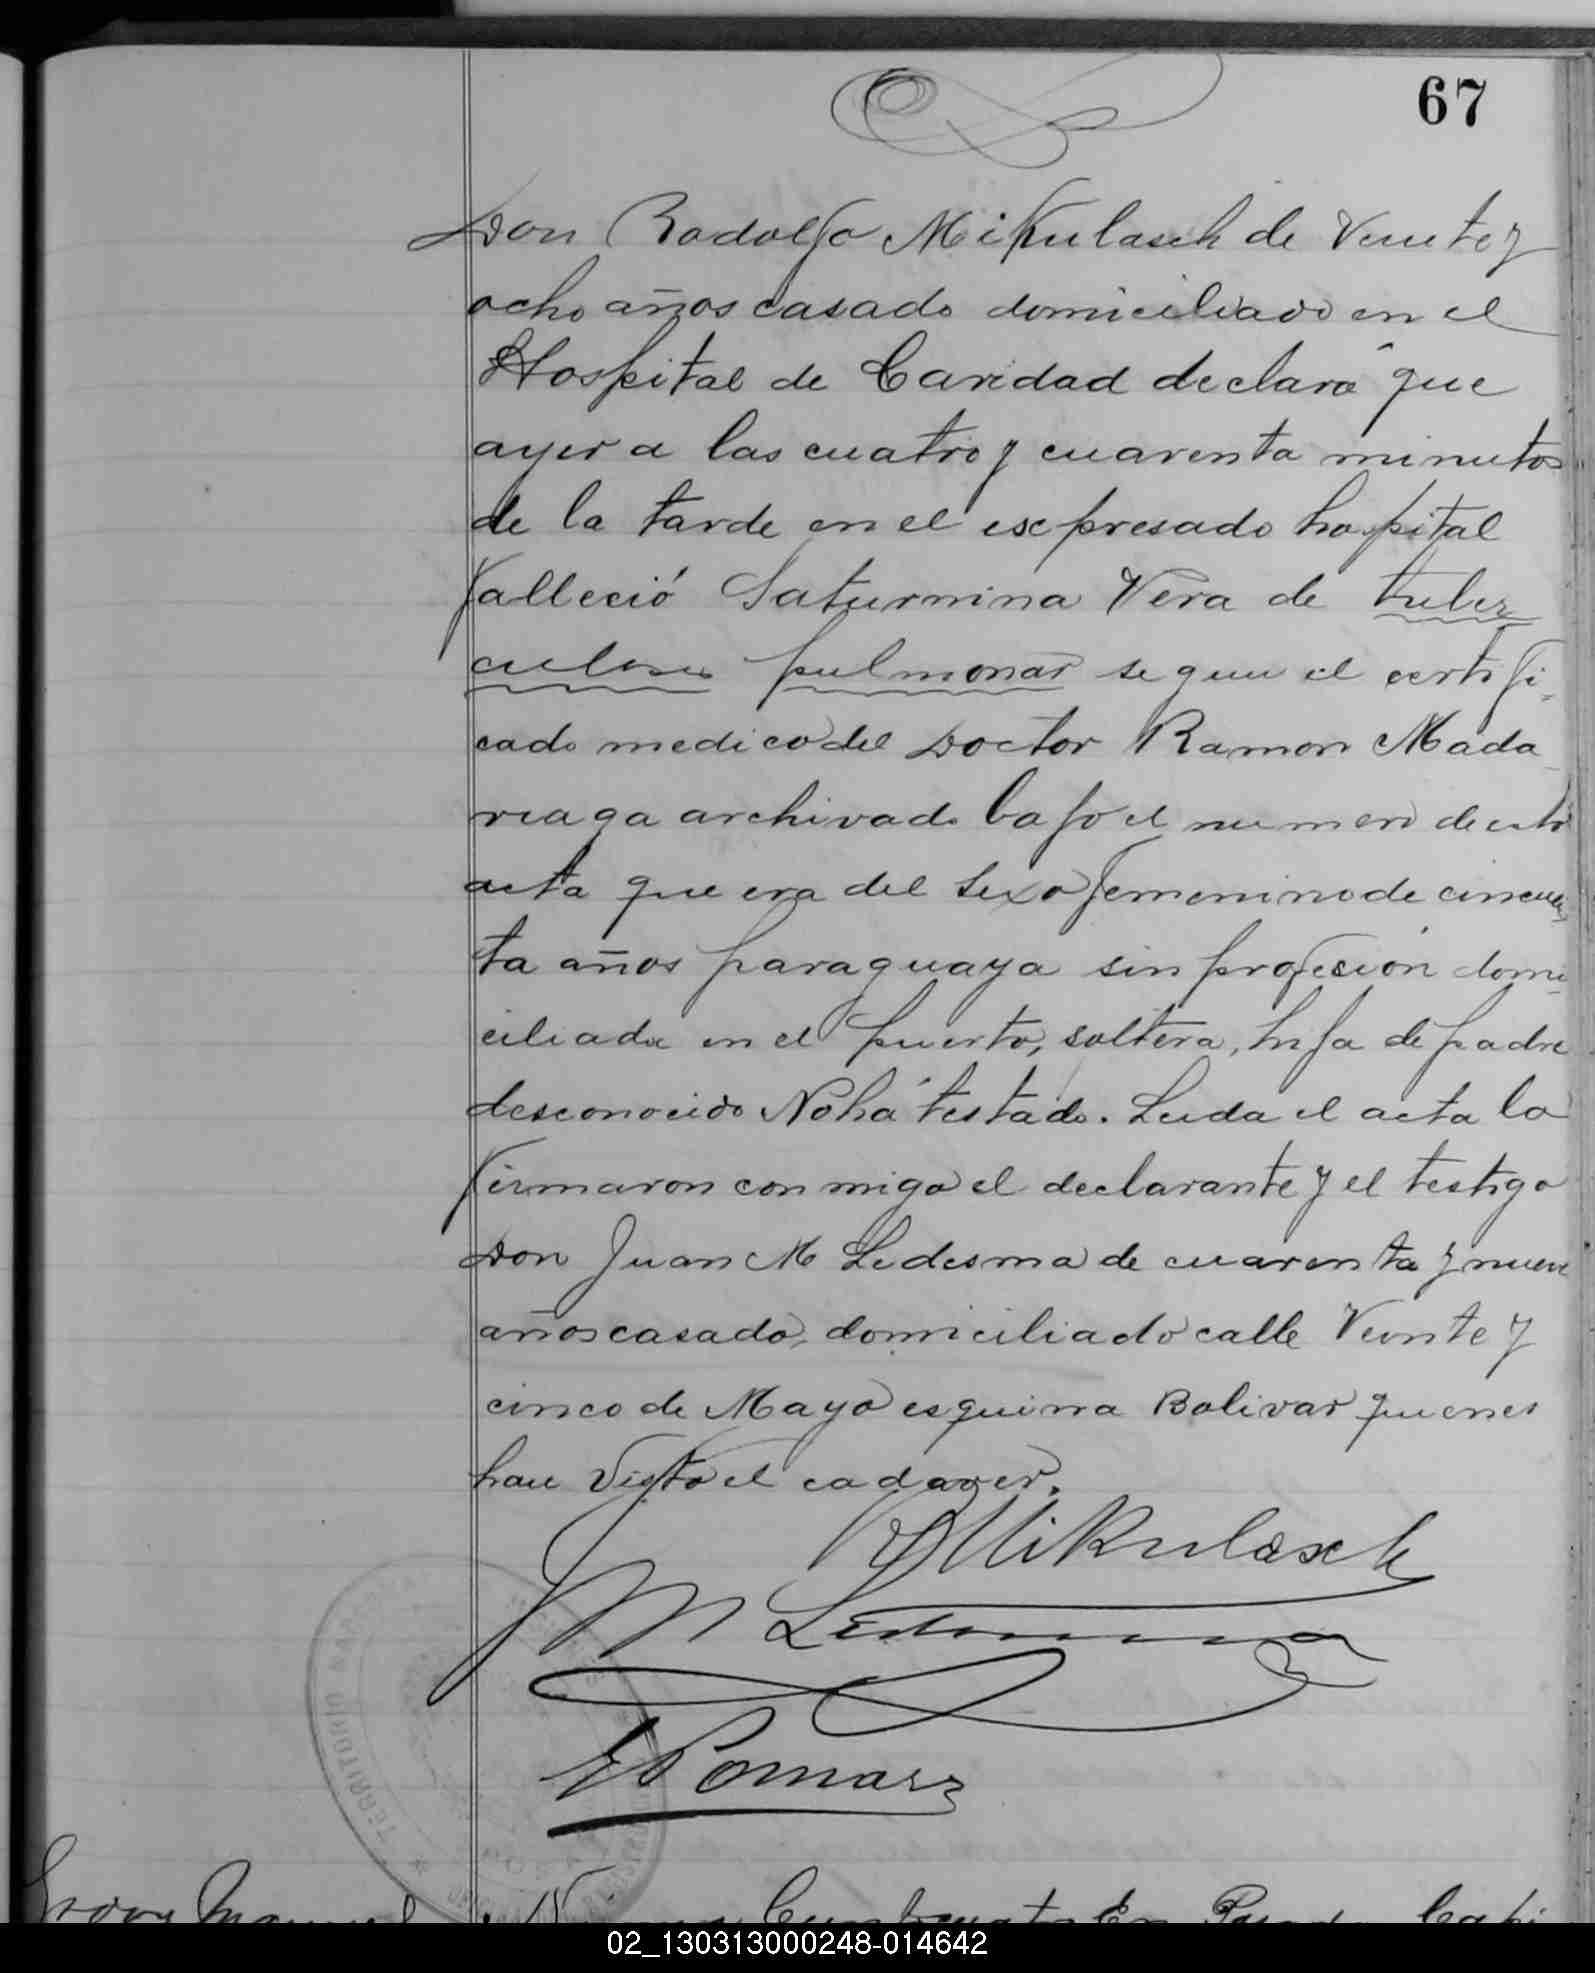 67
Don Rodolfo Mikulasch de Veinte y
ocho años casado domiciliado en el
Hospital de Caridad declaró que
ayer a las cuatro y cuarenta minutos
de la tarde en el expresado hospital
falleció Saturnina Vera de tuber
culosis pulmonar segun el certifi-
cado medico del Doctor Ramon Mada-
riaga archivado bajo el numero de esta
acta que era del sexo femenino de cincuen
ta años paraguaya sin profesión domi-
ciliada en el puerto, soltera, hija de padre
desconocido No há testado. Leida el acta la
firmaron conmigo el declarante y el testigo
Don Juan M Ledesma de cuarenta y nueve
años casado, domiciliado calle Veinte y
cinco de Mayo esquina Bolivar quienes
han Visto el cadaver.
R Mikulasch
J M Ledesma
TERRITORIO NA
* 
Manuel
En Posadas Capi
02_130313000248-014642